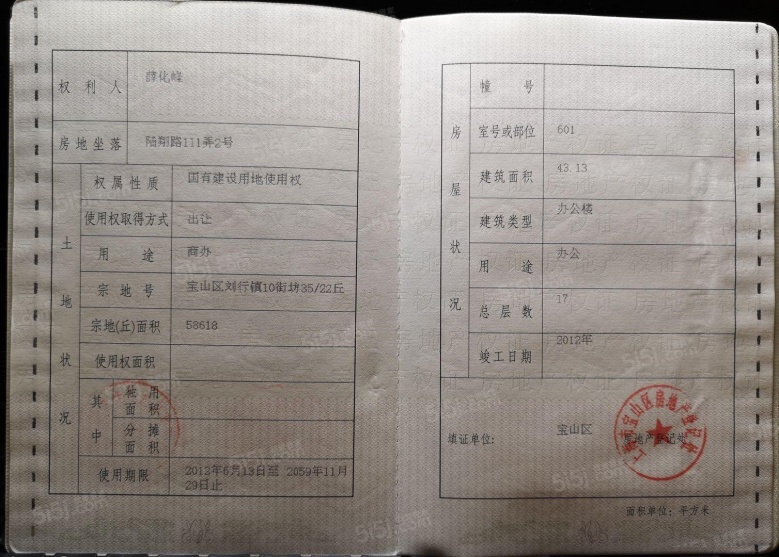 权利人 薛化峰
房地坐落 陆翔路111弄2号
土地状况
权属性质 国有建设用地使用权
使用权取得方式 出让
用途 商办
宗地号 宝山区刘行镇10街坊35/22丘
宗地(丘)面积 58618
使用权面积
其中
独用面积
分摊面积
使用期限 2012年6月13日至 2059年11月
29日止
房屋状况
幢号
室号或部位 601
建筑面积 43.13
建筑类型 办公楼
用途 办公
总层数 17
竣工日期 2012年
填证单位: 宝山区 房地产登记处
上海市宝山区房地产登记处
面积单位: 平方米